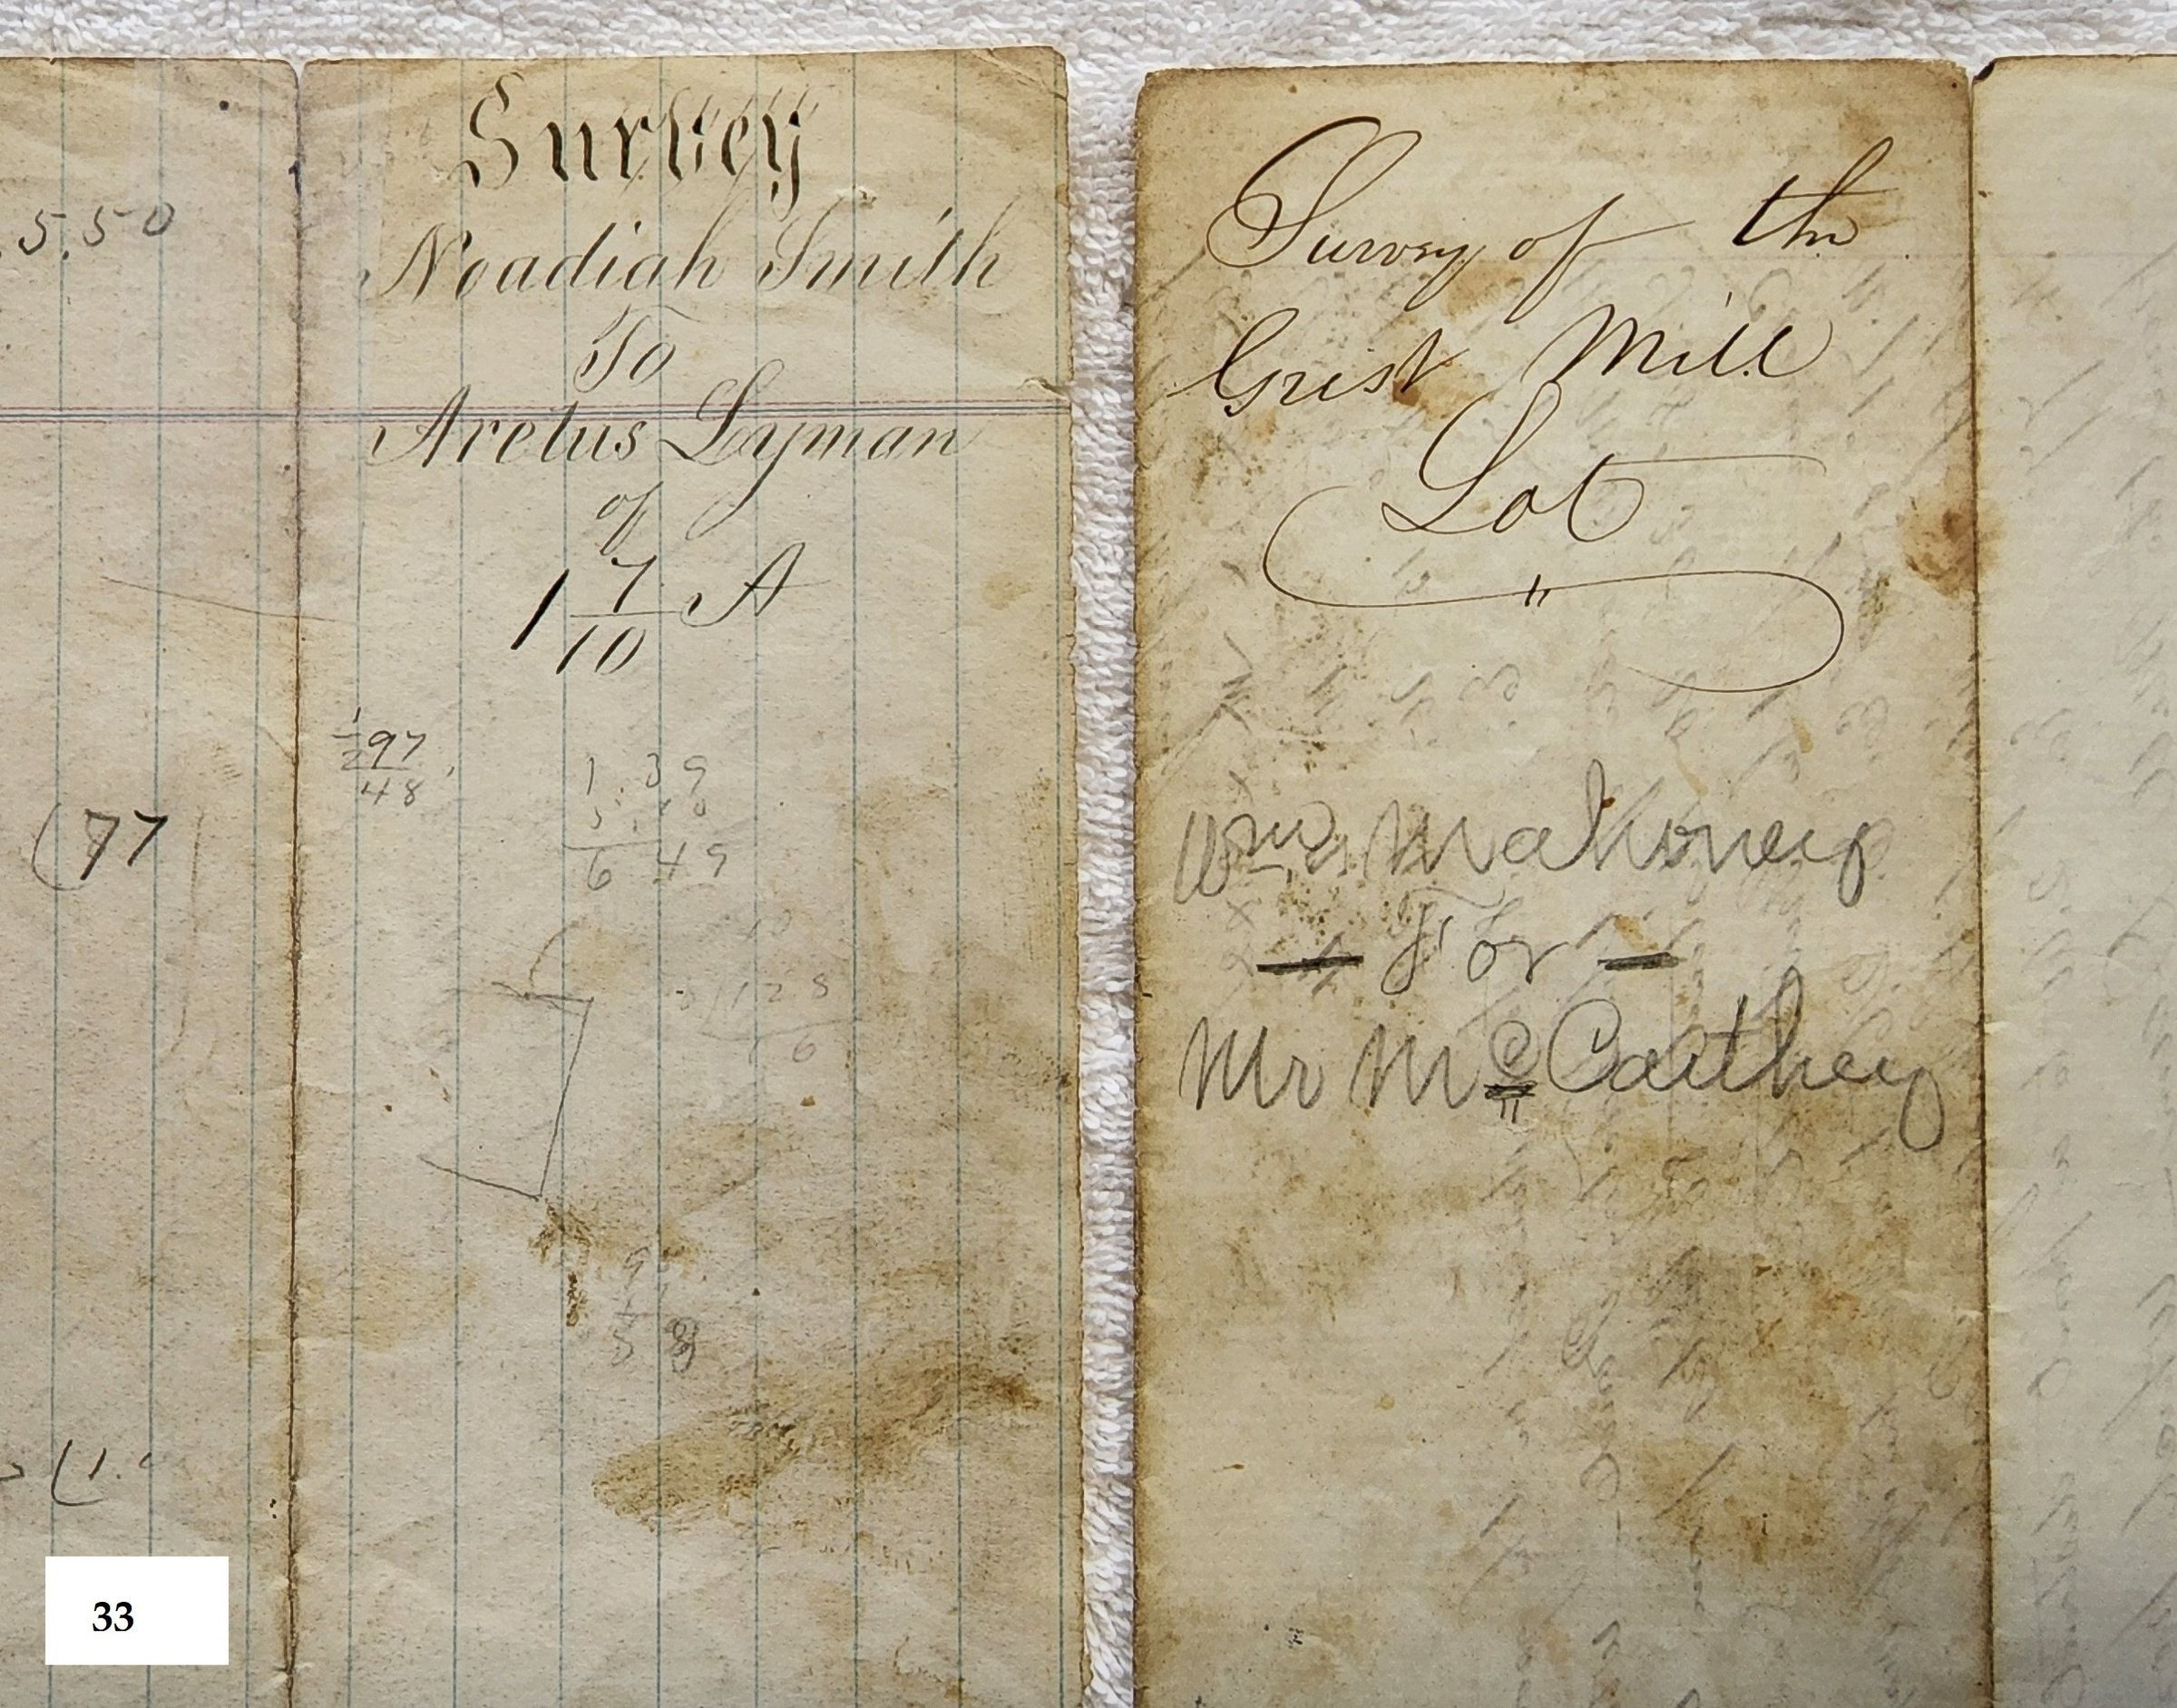 5.50
(77
(1.
Survey
Noadiah Smith
To
Aretus Lyman
of
1 7/10 A
1/2 97
48
1.39
5.10
6 49
Survey of the
Grist Mill
Lot
"
Wm. Mahoney
— For —
Mr Mc Carthey
33